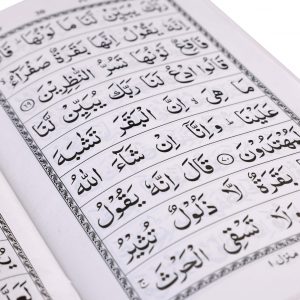 رَبَّكَ يُبَيِّنْ لَّنَا مَا لَوْنُهَا ؕ قَالَ
اِنَّهٗ يَقُوْلُ اِنَّهَا بَقَرَةٌ صَفْرَآءُ ۙ
فَاقِعٌ لَّوْنُهَا تَسُرُّ النّٰظِرِيْنَ ﴿۶۹﴾
قَالُوا ادْعُ لَنَا رَبَّكَ يُبَيِّنْ لَّنَا
مَا هِيَ ۙ اِنَّ الْبَقَرَ تَشٰبَهَ
عَلَيْنَا ؕ وَاِنَّاۤ اِنْ شَآءَ اللّٰهُ
لَمُهْتَدُوْنَ ﴿۷۰﴾ قَالَ اِنَّهٗ يَقُوْلُ
اِنَّهَا بَقَرَةٌ لَّا ذَلُوْلٌ تُثِيْرُ
الْاَرْضَ وَلَا تَسْقِى الْحَرْثَ ۚ
منزل ۱